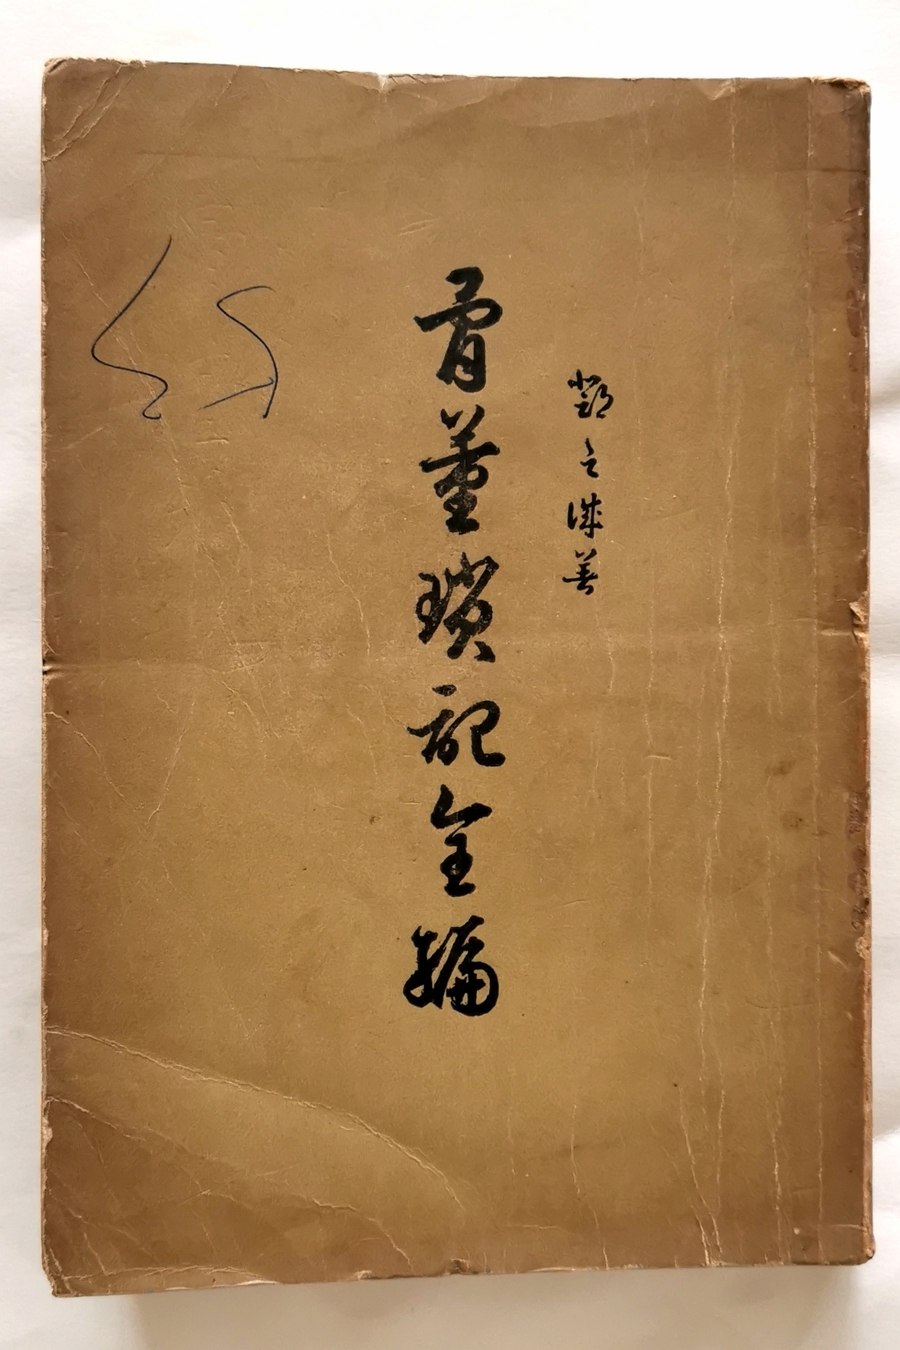 鄧之誠著
骨董瑣記全編